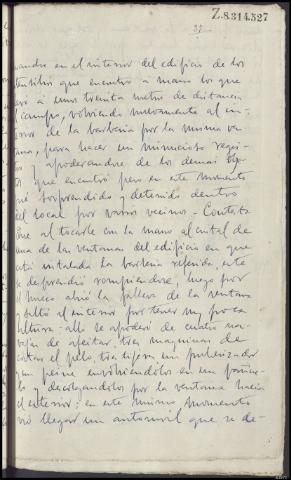 Z-8.314.527
en el interior del edificio de los
que encontró a mano los que
a unos treinta metros de distancia
campo, volviendo nuevamente al in-
de la barbería por la misma ve-
para hacer un minucioso regis-
y apoderandose de los demas
que encontró pero en este momento
sorprendido y detenido dentros
del local por varios vecinos - Contesta
que al tocarle con la mano al cristal de
una de las ventanas del edificio en que
está instalada la barbería referida, este
se desprendió rompiendose, luego por
el hueco abrió la falleba de la ventana
saltó al interior por tener muy poca
altura: alli se apoderó de cuatro na-
vajas de afeitar, tres maquinas de
cortar el pelo, tres tijeras un pulverizador
un peine envolviendolos en un pañue-
lo y descolgandolos por la ventana hacia
el exterior: en este mismo momento
vió llegar un automovil que se de-